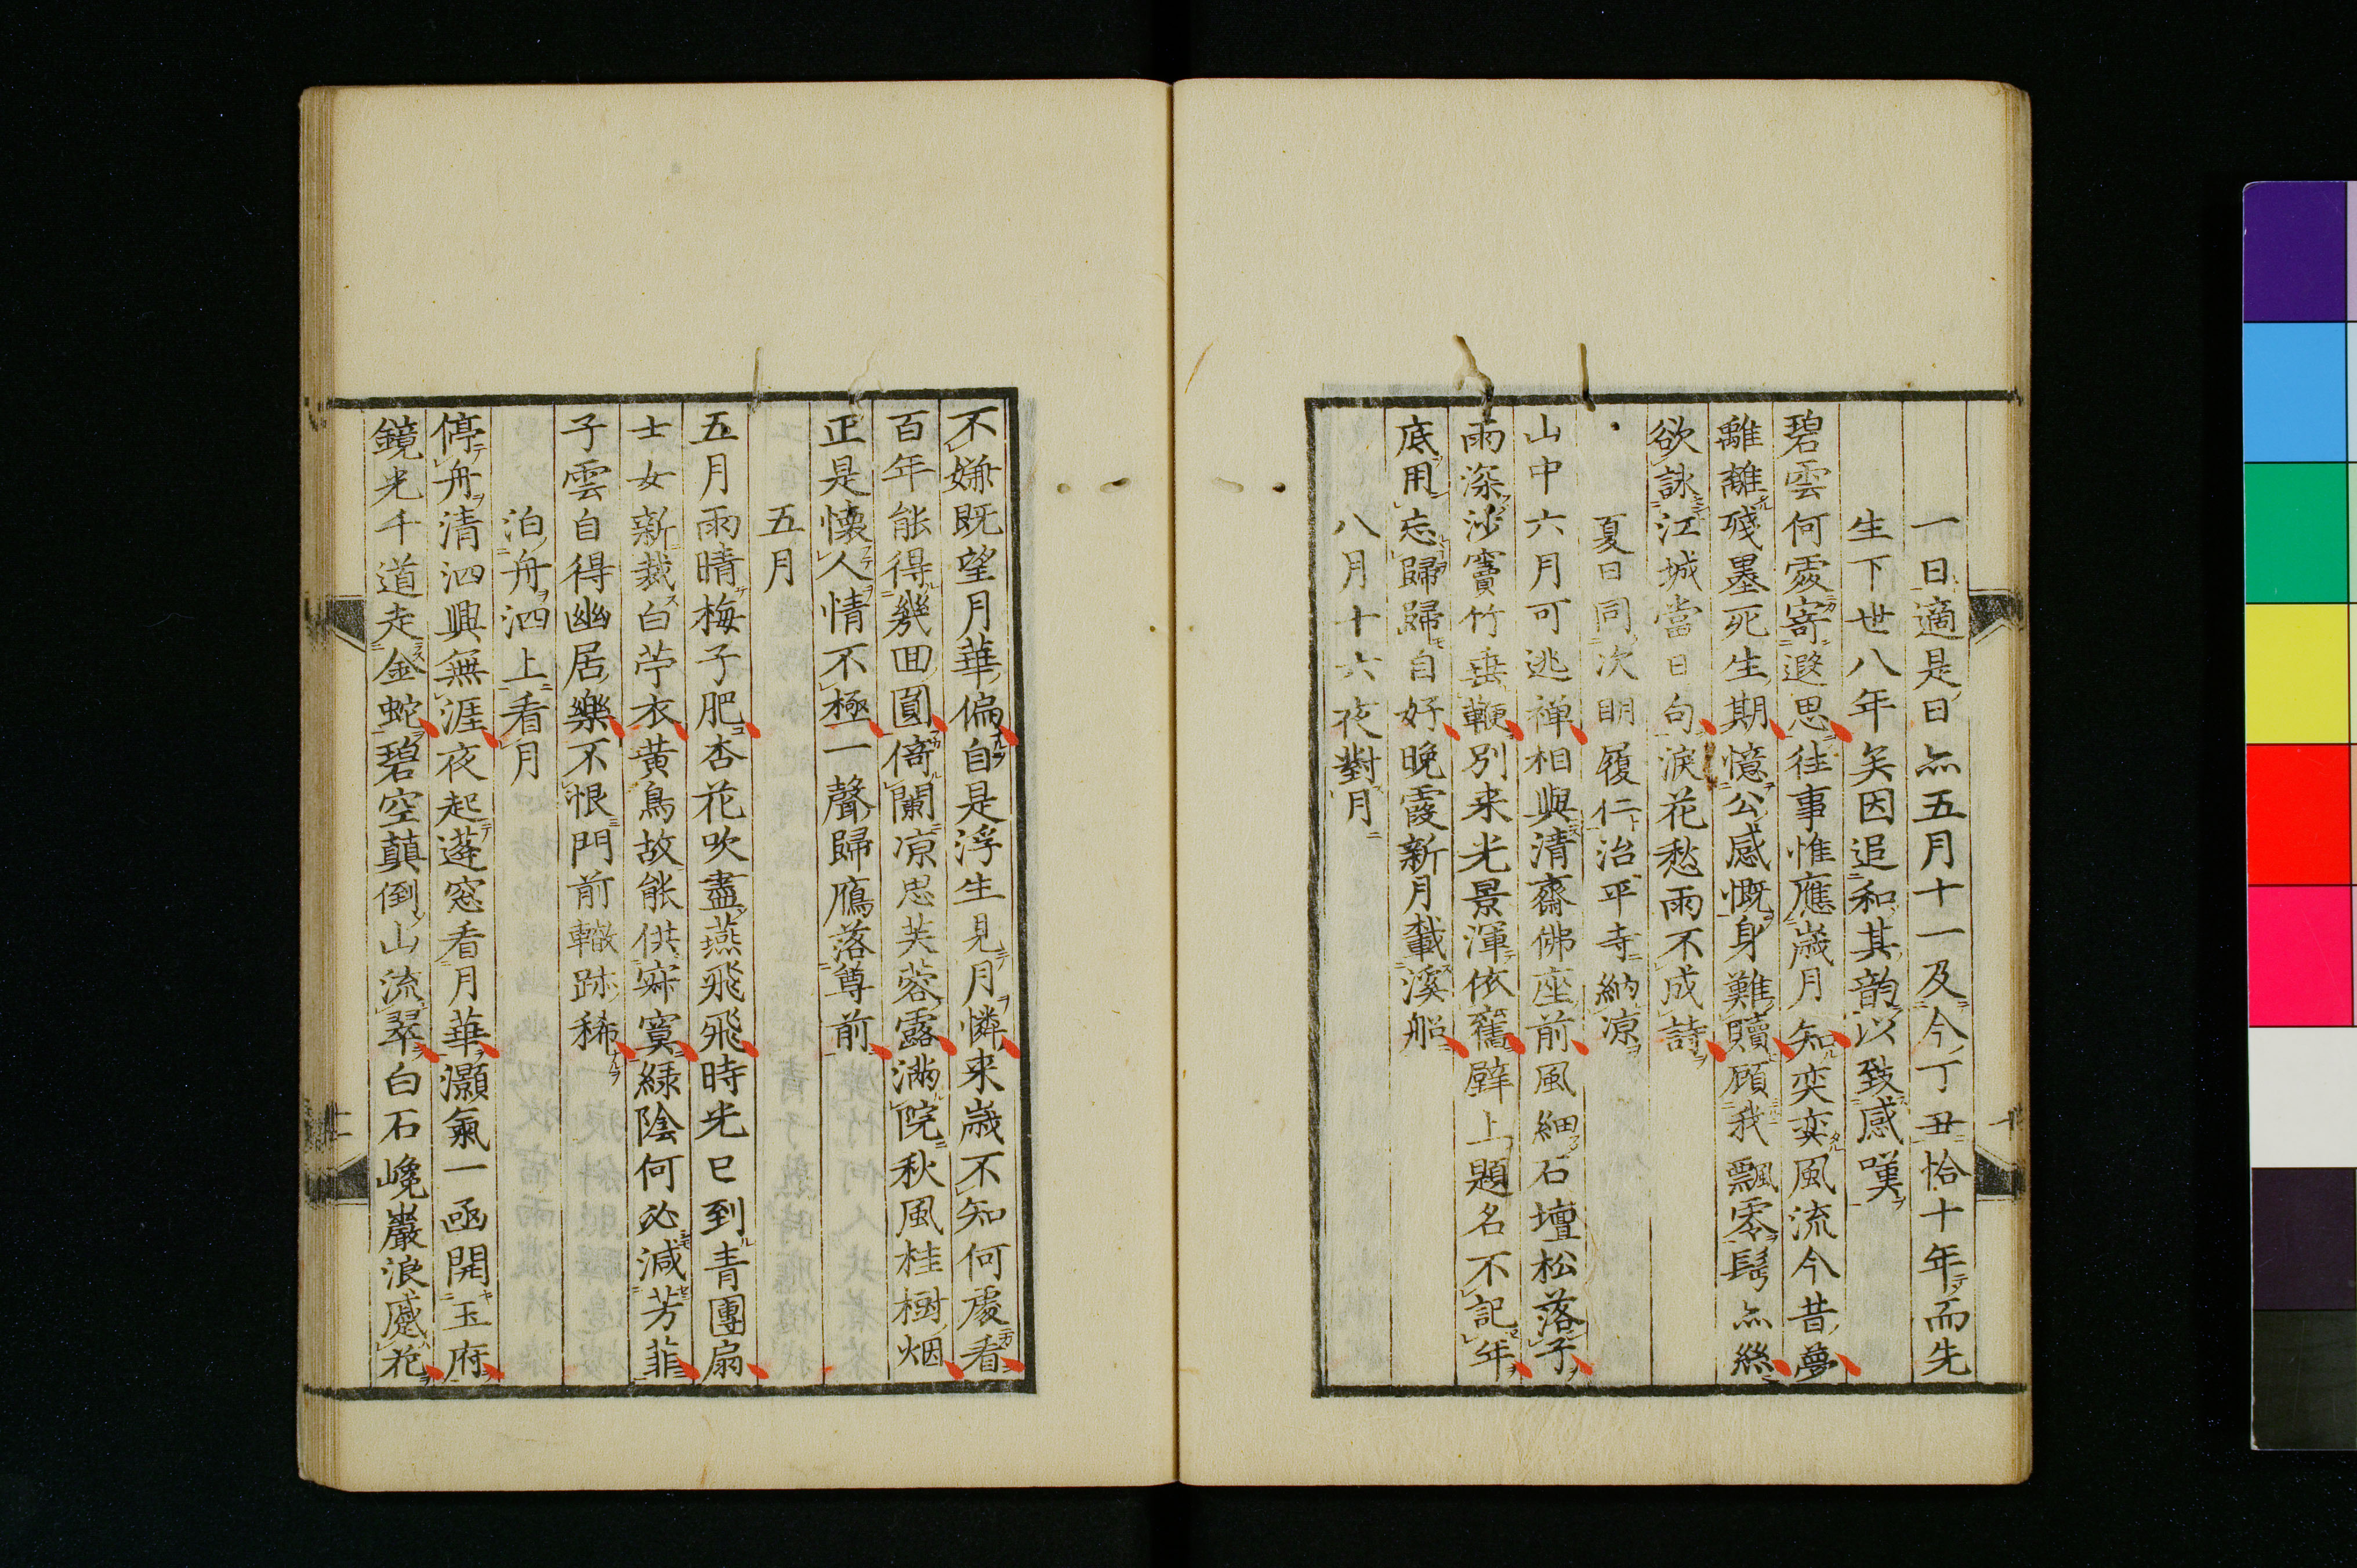 一日適是日亦五月十一及今丁丑恰十年而先
生下世八年矣因追和其韵以致感嘆
碧雲何處寄遐思往事惟應歳月知奕奕風流今昔夢
離離殘墨死生期憶公感慨身難贖顧我飄零髩亦絲
欲詠江城當日句淚花愁雨不成詩
夏日同次明履仁治平寺納凉
山中六月可逃禅相與清齋佛座前風細石壇松落子
雨深沙竇竹垂鞭別来光景渾依舊壁上題名不記年
底用忘歸歸自好晚霞新月載溪船
八月十六夜對月
十
不嫌既望月華偏自是浮生見月憐来歳不知何處看
百年能得幾回圓倚闌凉思芙蓉露滿院秋風桂樹烟
正是懐人情不極一聲歸鴈落尊前
五月
五月雨晴梅子肥杏花吹盡燕飛飛時光已到青團扇
士女新裁白苧衣黄鳥故能供寂寞緑陰何必減芳菲
子雲自得幽居樂不恨門前轍跡稀
泊舟泗上看月
停舟清泗興無涯夜起蓬窓看月華灝氣一凾開玉府
鏡光千道走金蛇碧空顛倒山流翠白石巉巖浪蹙花
十一